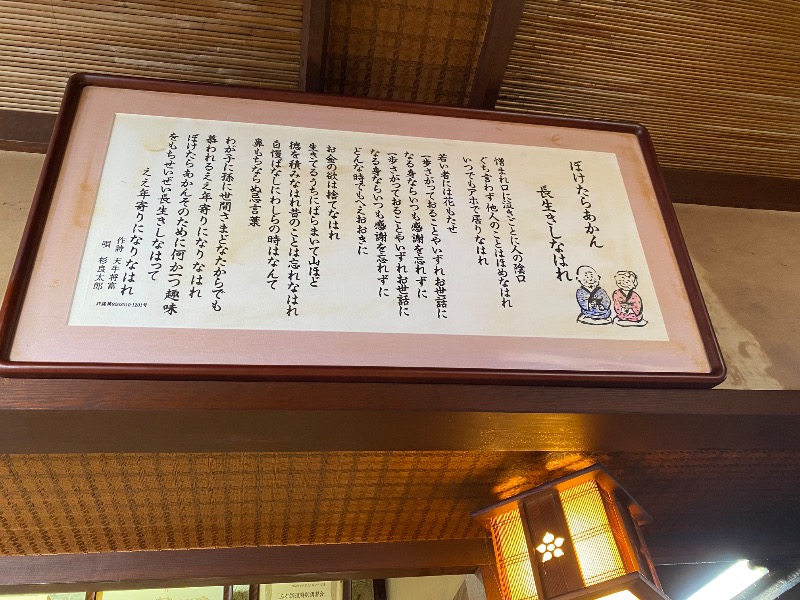 ぼけたらあかん
長生きしなはれ
憎まれ口に泣きごとに人の陰口
ぐちを言わず他人のことはほめなはれ
いつでもアホで居りなはれ
若い者には花もたせ
一歩さがっておることやいずれお世話に
なる身ならいつも感謝を忘れずに
一歩さがっておることやいずれお世話に
なる身ならいつも感謝を忘れずに
どんな時でもへえおおきに
お金の欲は捨てなはれ
生きてるうちにばらまいて山ほど
徳を積みなはれ昔のことは忘れなはれ
自慢ばなしにわしらの時はなんて
鼻もちならぬ忌言葉
わが子に孫に世間さまどなたからでも
慕われるええ年寄りになりなはれ
ぼけたらあかんそのために何か一つ趣味
をもちせいぜい長生きしなはって
ええ年寄りになりなはれ
作詩 天牛将富
唄 杉良太郎